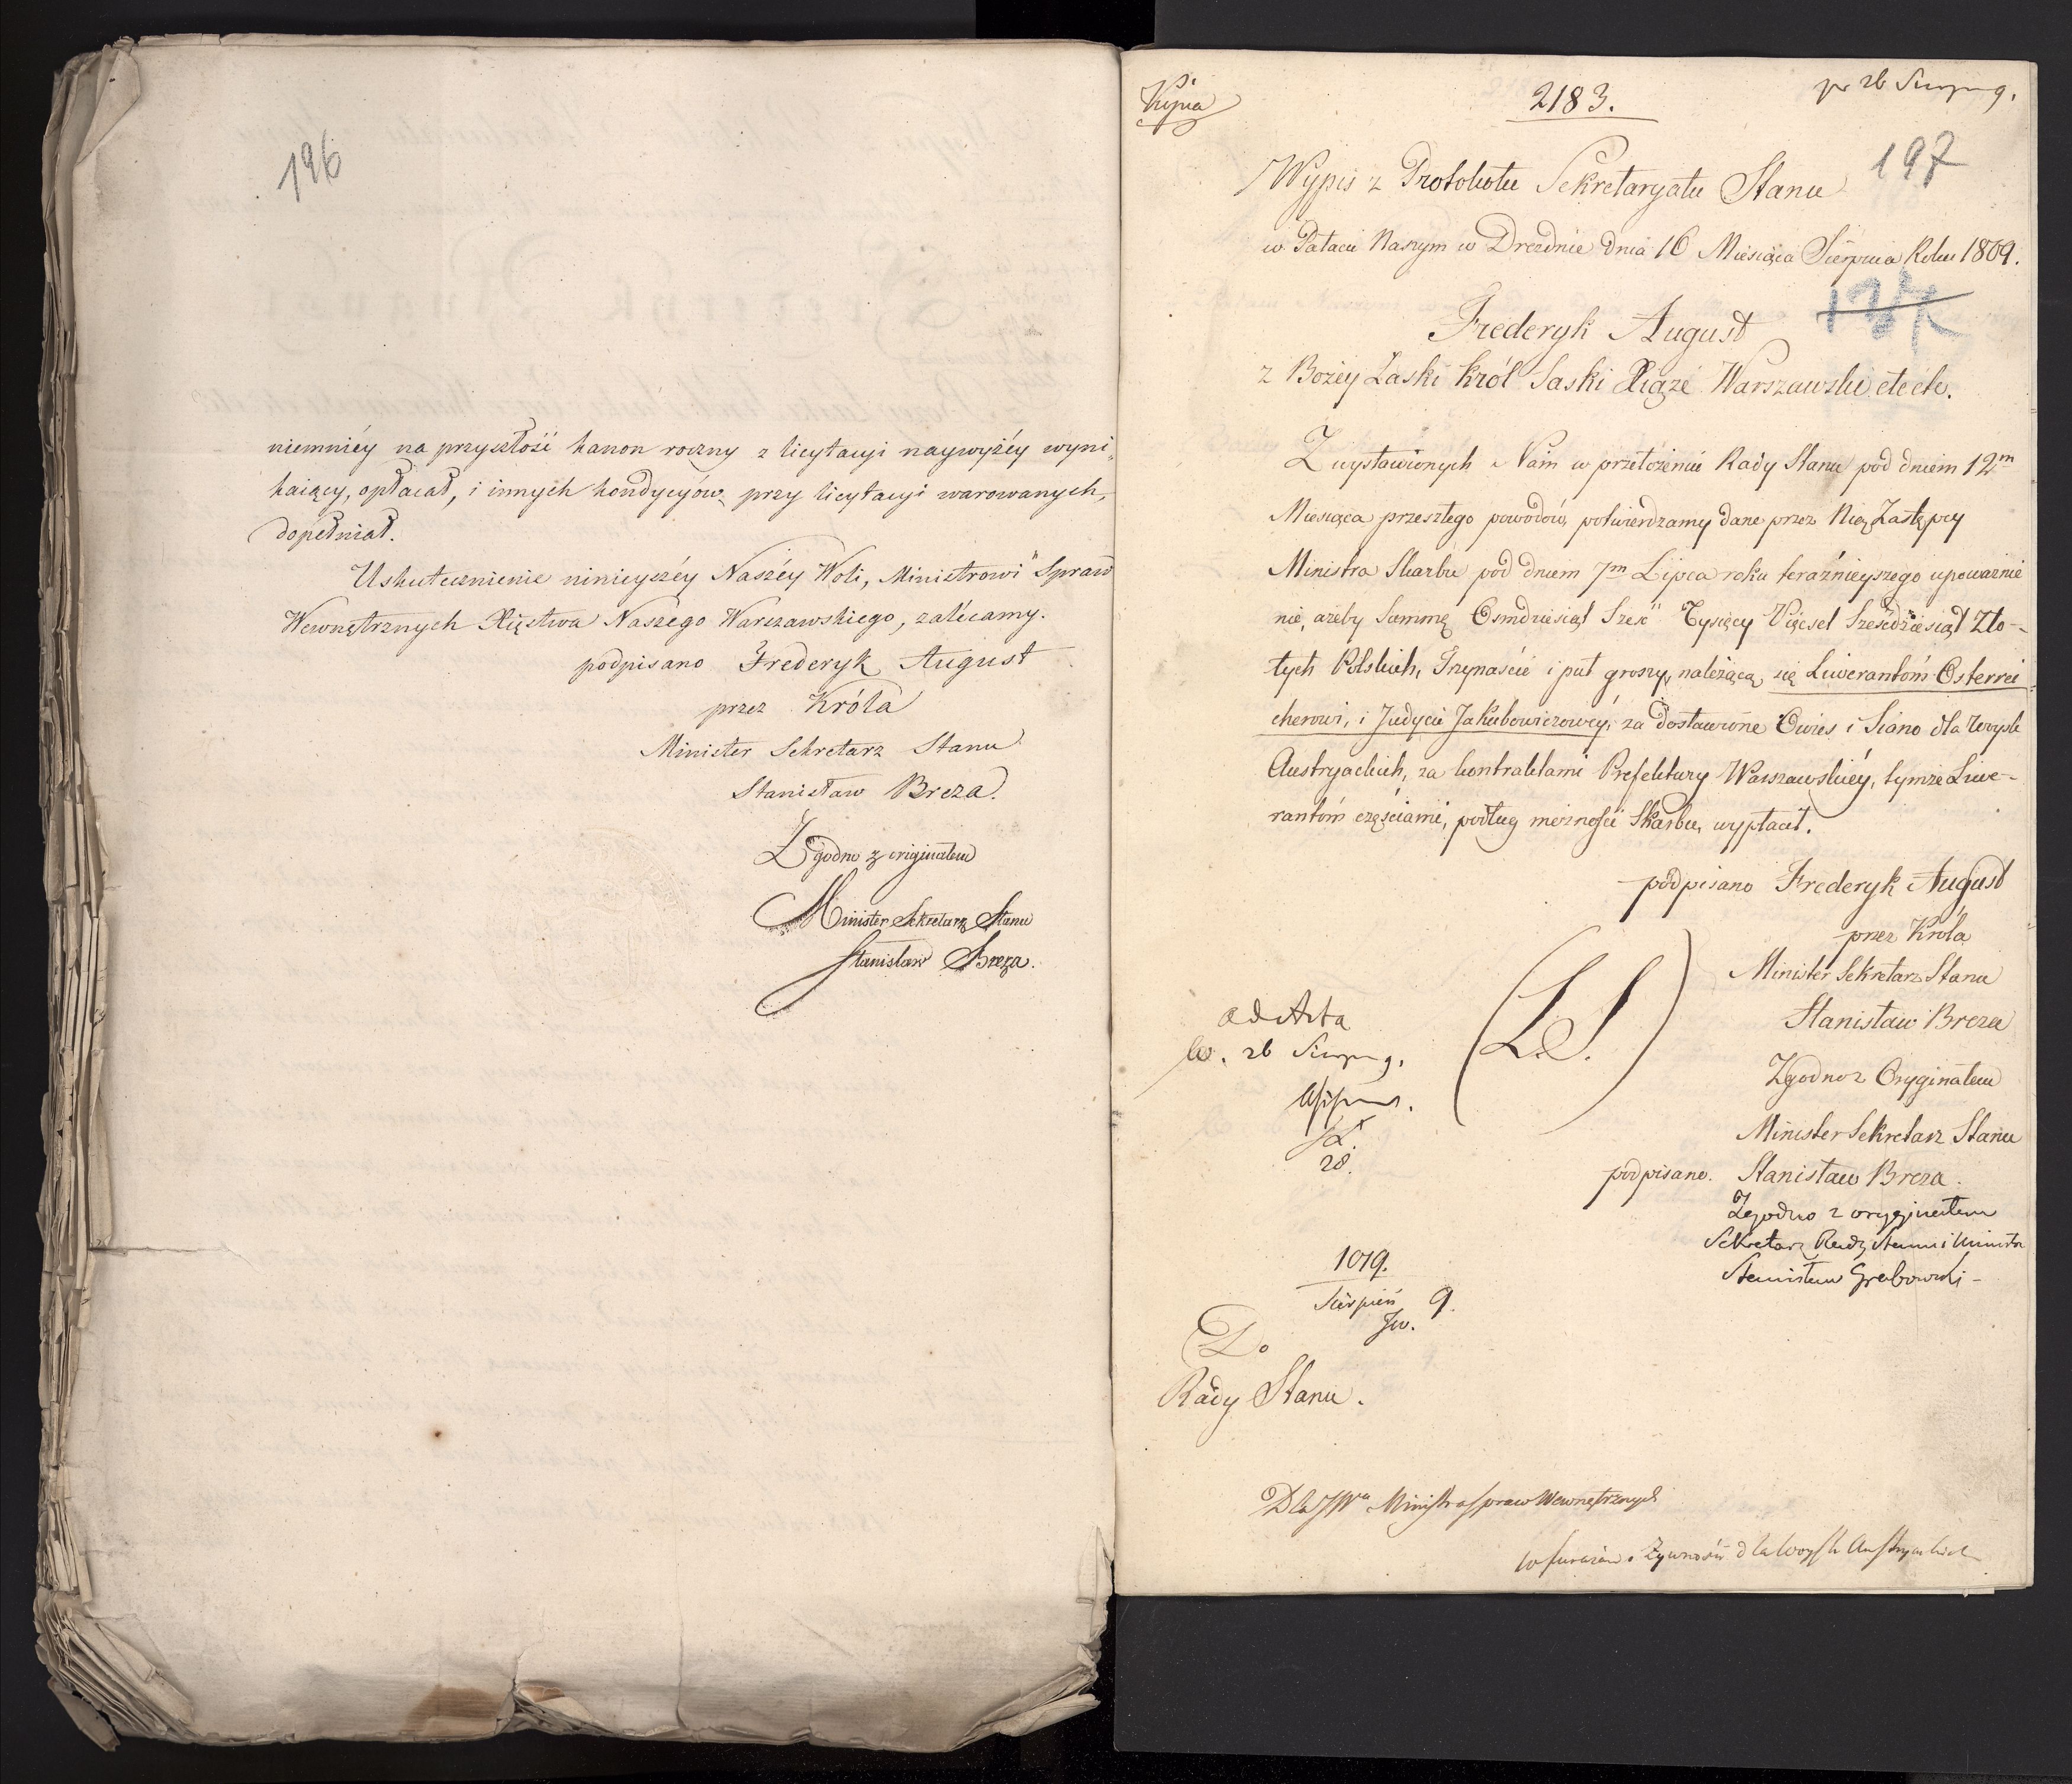 196
niemniéy na przyszłość kanon roczny z licytacyi naywyżéy wyni„
kaiący, opłacał, i innych kondycyów, przy licytacyi warowanych,
dopełniał.
Uskutecznienie ninieyszéy Naszéy Woli, Ministrowi Spraw
Wewnętrznych Xięstwa Naszego Warszawskiego, zalecamy.
podpisano Frederyk August
przez Króla
Minister Sekretarz Stanu
Stanisław Breza.
Zgodno z originałem
Minister Sekretarz Stanu
Stanisław Breza.
Kopia
2183.
pr 26 Sierpnia 9.
197
Wypis z Protokołu Sekretaryatu Stanu
w Pałacu Naszym w Dreźnie dnia 16 Miesiąca Sierpnia Roku 1809.
Frederyk August
z Bożey Łaski Król Saski Xiąże Warszawski etc etc.
Z wystawionych Nam w przełożeniu Rady Stanu pod dniem 12m
Miesiąca przeszłego powodów, potwierdzamy dane przez Nię Zastępcy
Ministra Skarbu pod dniem 7m Lipca roku teraźnieyszego upoważnie
nie, ażeby Summę Osmdziesiąt Sześć Tysięcy Pięcset Sześćdziesiąt Zło-
tych Polskich, Trzynaście i puł groszy, należącą się Liwerantóm Osterrei
cherowi, i Judycie Jakubowiczowéy, za dostawione Owies i Siano dla Woysk
Austryackich, za kontraktami Prefektury Warszawskiéy, tymże Liwe-
rantóm częściami, podług możności Skarbu, wypłacił.
podpisano Frederyk August
przez Króla
Minister Sekretarz Stanu
Stanisław Breza
(L.S.)
Zgodno z Oryginałem
Minister Sekretarz Stanu
podpisano. Stanisław Breza.
Zgodno z oryginałem
Sekretarz Rady Stanu i Ministr
Stanisław Grabowski -
ad Acta
26 Sierpnia 9.
28.
1019.
Sierpień 9.
Do
Rady Stanu.
Dla JWo Ministra Spraw Wewnętrznych
Żywność dla Woysk Austryackich